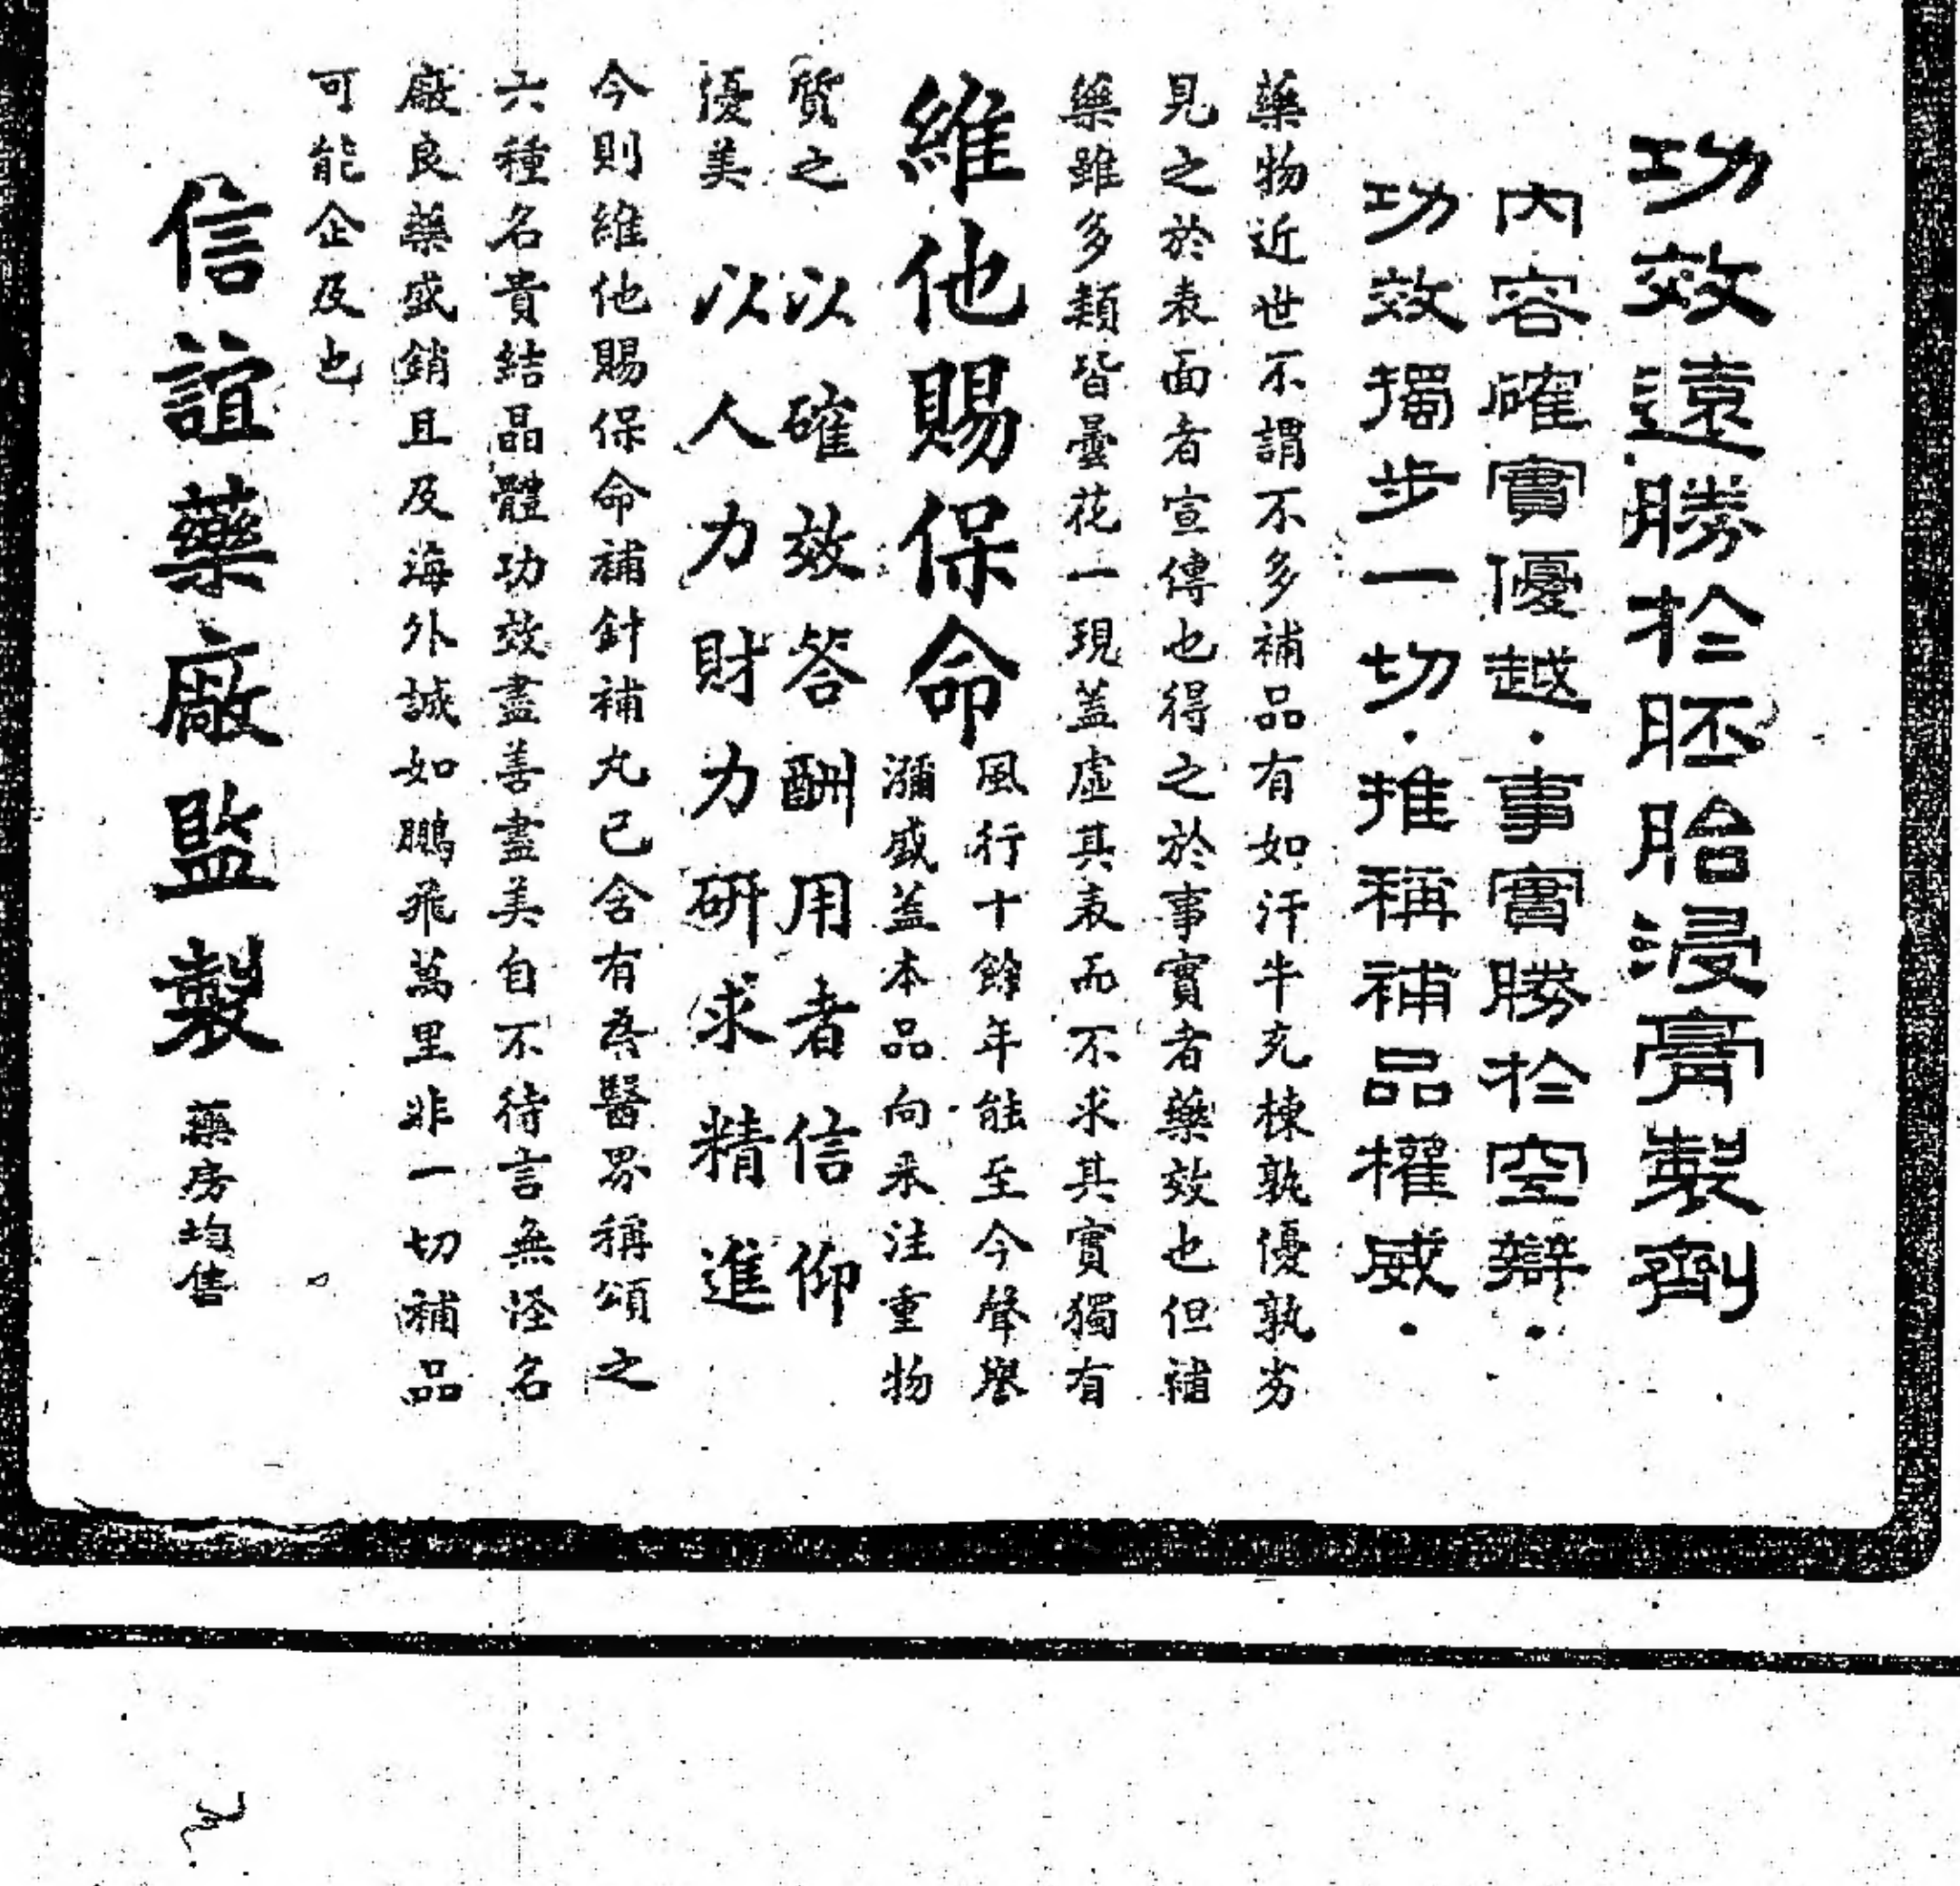 功效遠勝於胚胎浸膏製劑
內容確實優越·事實勝於空辯·
功效獨步一切·推稱補品權威·
藥物近世不謂不多補品有如汗牛充棟孰優孰劣
見之於表面者宣傳也得之於事實者藥效也但補
藥雖多類皆曇花一現蓋虛其表而不求其實獨有
維他賜保命
風行十餘年能至今聲譽
瀰盛蓋本品向來注重物
質之 以確效答酬用者信仰
優美 以人力財力研求精進
今則維他賜保命補針補丸已含有為醫界稱頌之
六種名貴結晶體功效盡善盡美自不待言無怪名
廠良藥盛銷且及海外誠如鵬飛萬里非一切補品
可能企及也
信誼藥廠監製 藥房均售